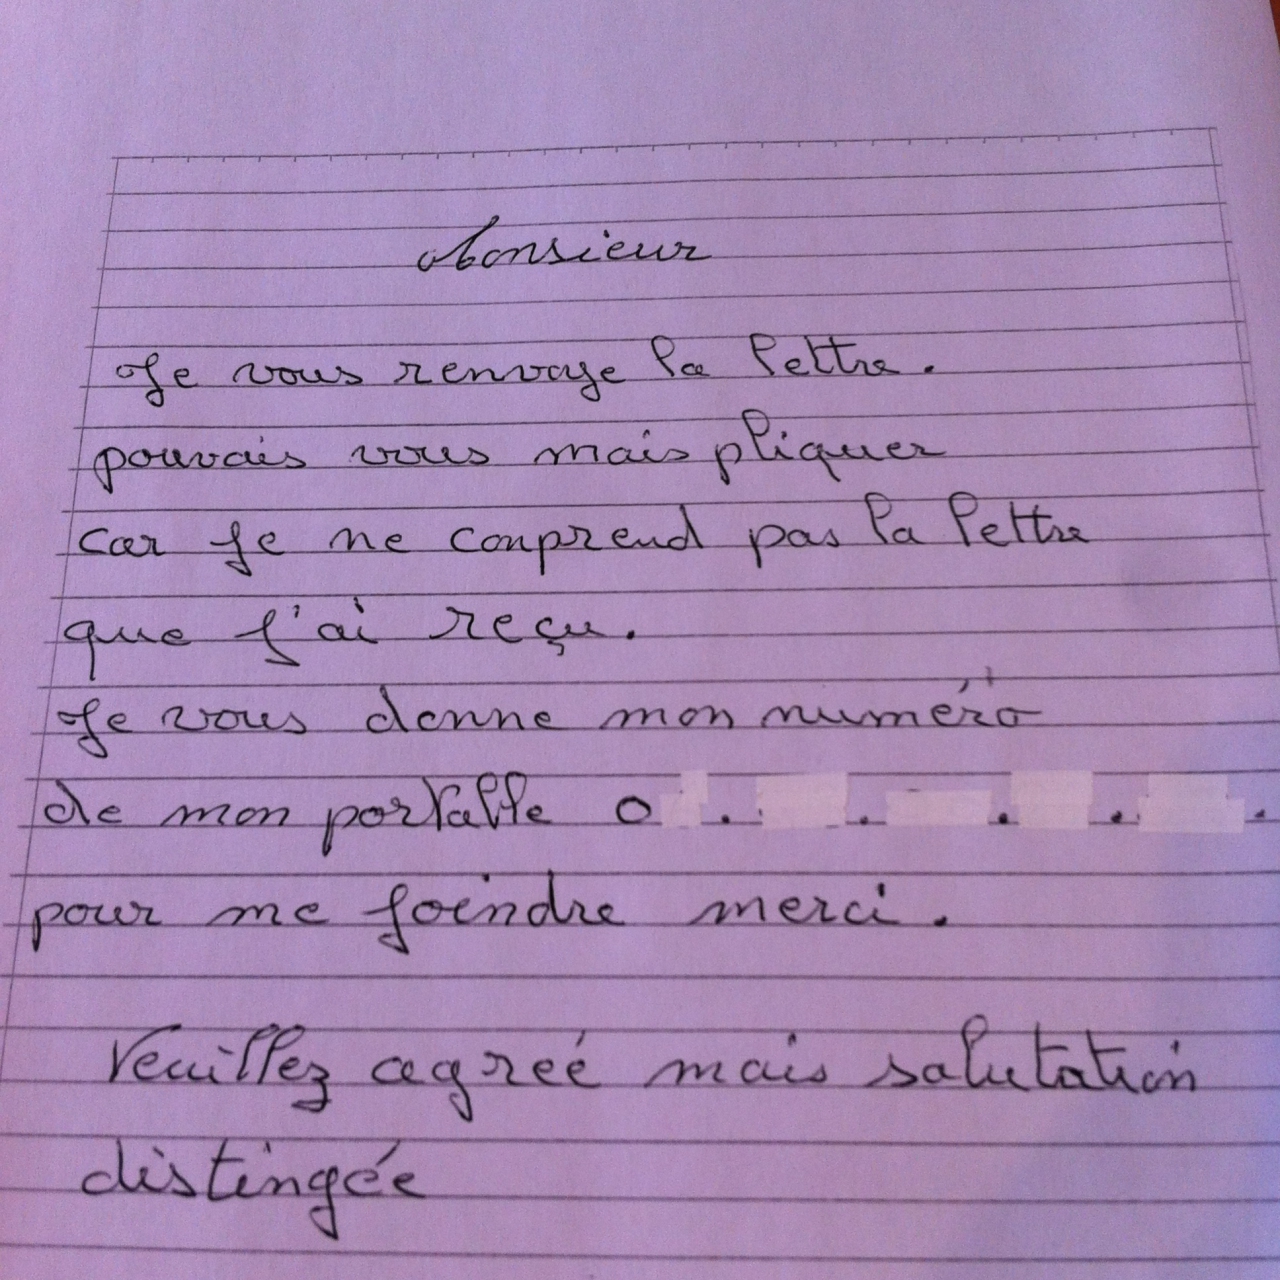 Monsieur
Je vous renvoye la lettre.
pouvais vous mais pliquer
car je ne conprend pas la lettre
que j'ai reçu.
Je vous donne mon numéro
de mon portable 0 . . . . .
pour me joindre merci.
Veuillez agreé mais salutation
distingée